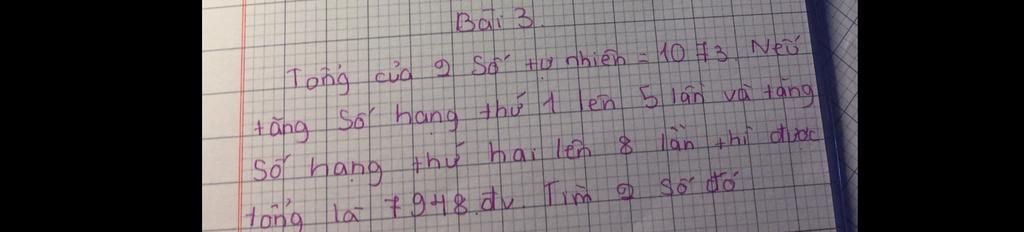 Bài 3
Tổng của 2 số tự nhiên = 1073. Nếu
tăng số hạng thứ 1 lên 5 lần và tăng
số hạng thứ hai lên 8 lần thì được
tổng là 7948.đv Tìm 2 số đó